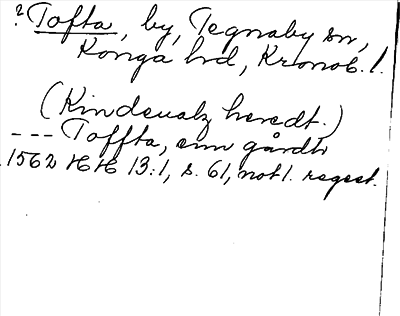 ? Tofta, by, Tegnaby sn,
Konga hd, Kronob. l.
(Kindeualz heredt.)
--- Toffta, enn gårdh
1562 HH 13:1, s. 61, not 1. regest.